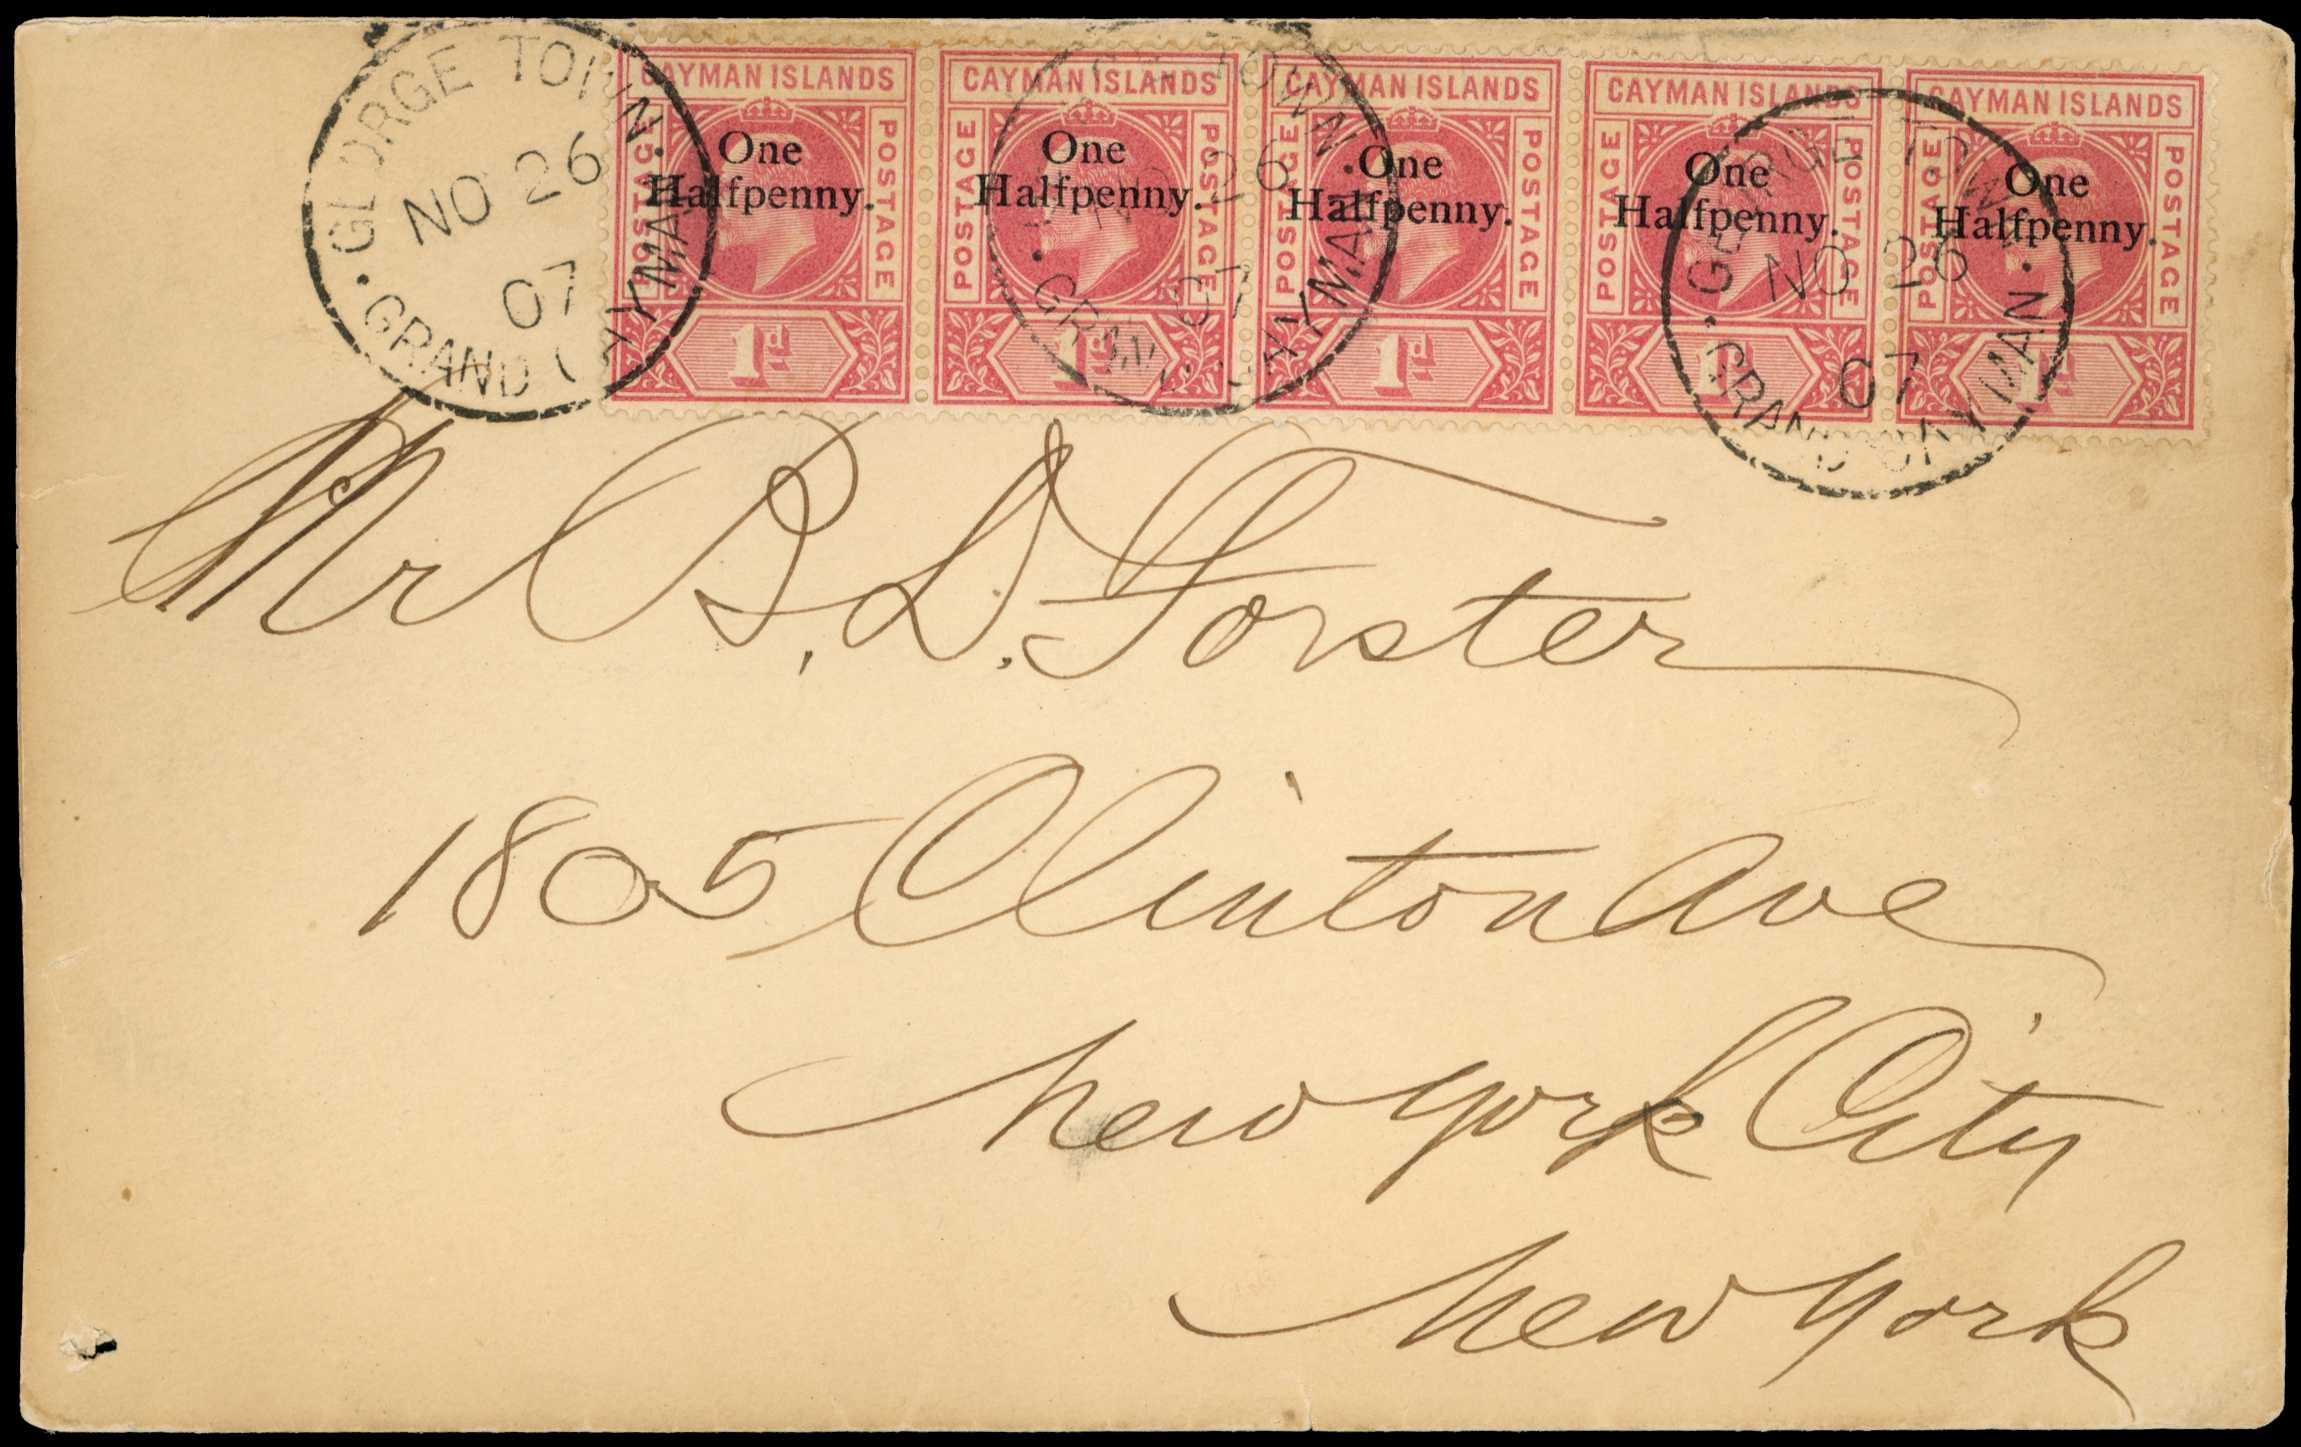 GEORGE TOWN.
NO 26
07
GRAND CAYMAN
CAYMAN ISLANDS
POSTAGE
One
Halfpenny.
POSTAGE
1d
CAYMAN ISLANDS
POSTAGE
One
Halfpenny.
POSTAGE
1d
TOWN.
NO 26
07
GRAND CAYMAN
CAYMAN ISLANDS
POSTAGE
One
Halfpenny.
POSTAGE
1d
CAYMAN ISLANDS
POSTAGE
One
Halfpenny.
POSTAGE
1d
GEORGE TOWN
NO 26
07
GRAND CAYMAN
CAYMAN ISLANDS
POSTAGE
One
Halfpenny.
POSTAGE
1d
Mr B. D. Forster
1805 Clinton Ave
New York City
New York